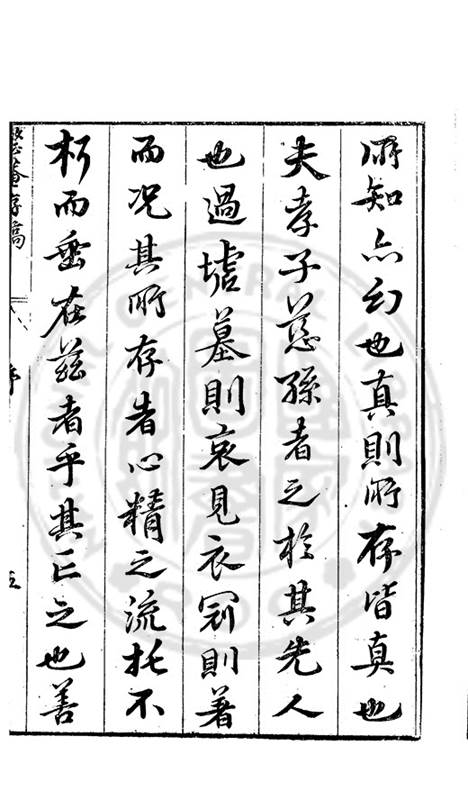 所知亦幻也真則所存皆真也
夫孝子慈孫者之於其先人
也過墟墓則哀見衣冠則著
而况其所存者心精之流托不
朽而垂在茲者乎其亡之也善
存稿
序
五